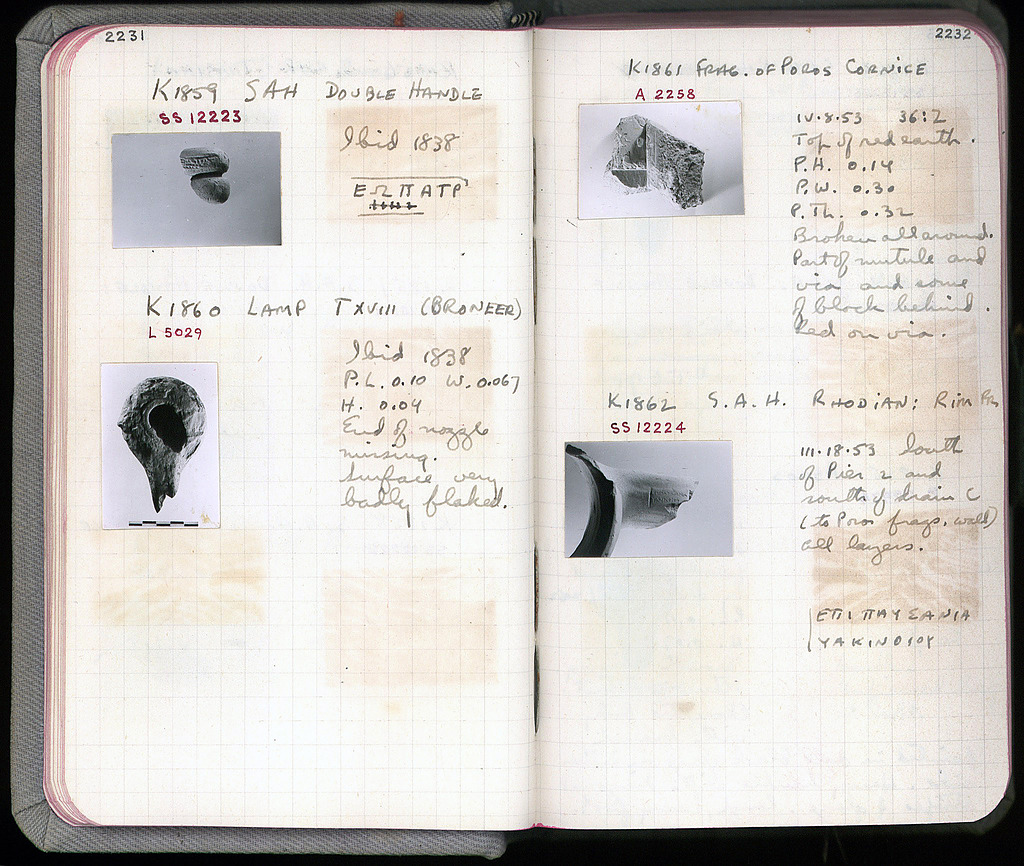 2231
K1859 SAH DOUBLE HANDLE
SS 12223
Ibid 1838
ΕΩΠΑΤΡ'
K1860 LAMP TXVIII (BRONEER)
L 5029
Ibid 1838
P.L. 0.10 W. 0.067
H. 0.04
End of nozzle
missing.
Surface very
badly flaked.
2232
K1861 FRAG. OF POROS CORNICE
A 2258
IV.8.53 36:Ξ
Top of red earth.
P.H. 0.14
P.W. 0.30
P.Th. 0.32
Broken all around.
Part of mutule and
via and some
of block behind.
Red on via.
K1862 S.A.H. RHODIAN; RIM
SS 12224
III.18.53 South
of Pier 2 and
south of drain C
(to Poros frags. wall)
all layers.
ΕΠΙ ΠΑΥΣΑΝΙΑ
ΥΑΚΙΝΘΙΟΥ